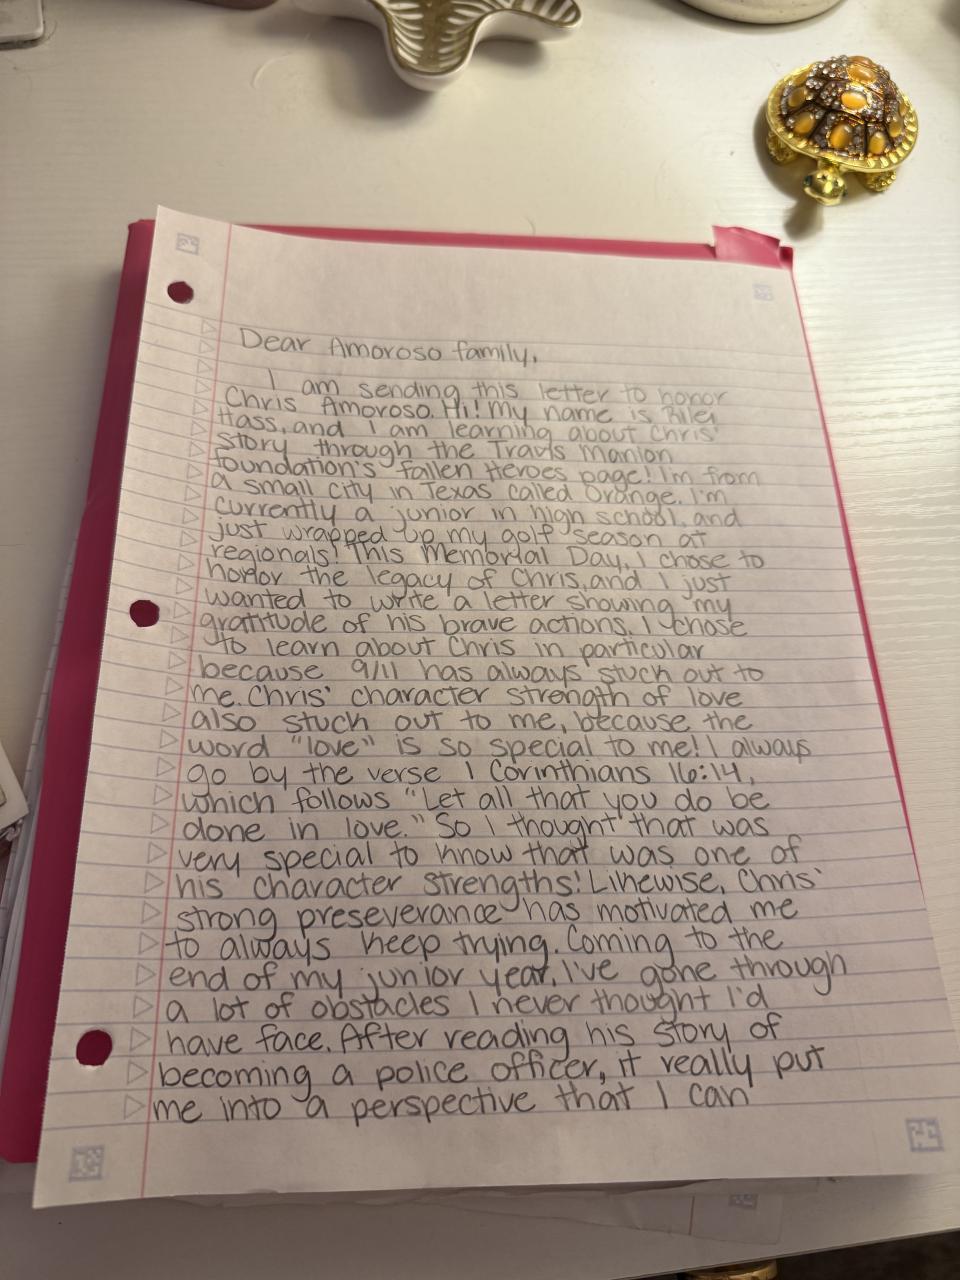 Dear Amoroso family,
I am sending this letter to honor
Chris Amoroso. Hi! My name is Riley
Hass, and I am learning about Chris'
story through the Travis Manion
foundation's fallen Heroes page! I'm from
a small city in Texas called Orange. I'm
currently a junior in high school, and
just wrapped up my golf season at
regionals! This Memorial Day, I chose to
honor the legacy of Chris, and I just
wanted to write a letter showing my
gratitude of his brave actions. I chose
to learn about Chris in particular
because 9/11 has always stuck out to
me. Chris' character strength of love
also stuck out to me, because the
word "love" is so special to me! I always
go by the verse 1 Corinthians 16:14,
which follows "Let all that you do be
done in love." So I thought that was
very special to know that was one of
his character strengths! Likewise, Chris'
strong preseverance has motivated me
to always keep trying. Coming to the
end of my junior year, I've gone through
a lot of obstacles I never thought I'd
have face. After reading his story of
becoming a police officer, it really put
me into a perspective that I can